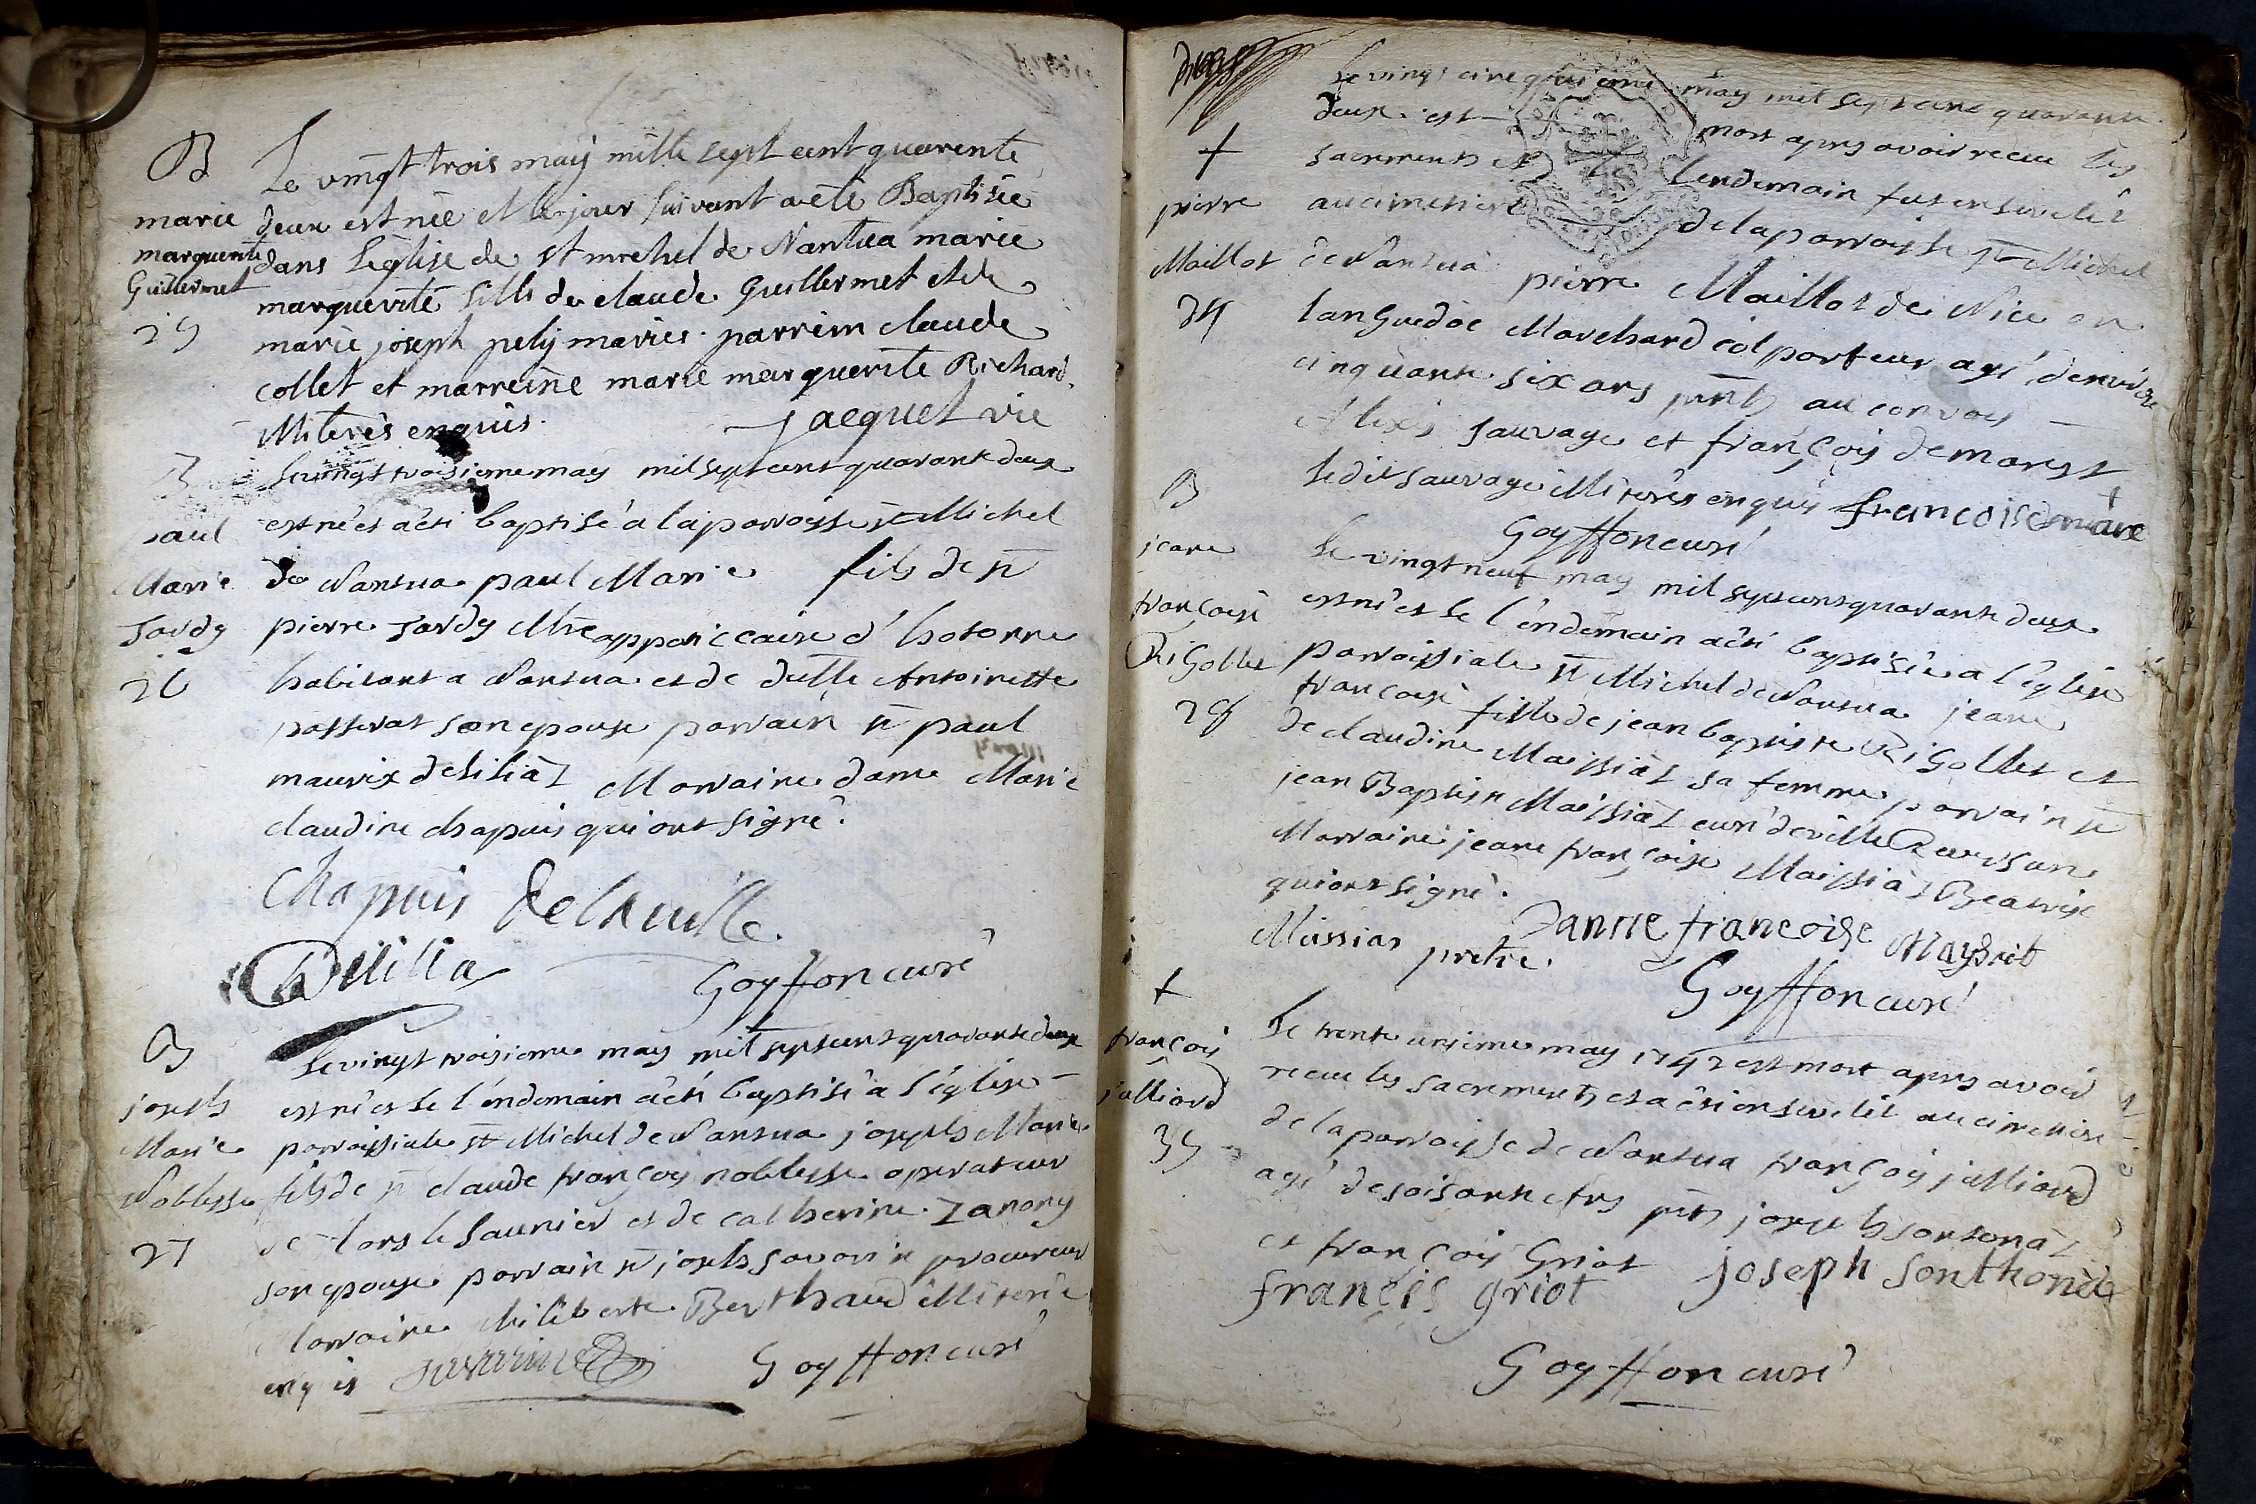 B
marie
marguerite
Guillermet
25
Le vingt trois maij mille sept cent quarente
deux est née et le jour suivant a été Baptisée
dans L'église de st michel de Nantua marie
marguerite fille de claude Guillermet et de
marie joseph pelij mariés. parrein claude
collet et marreine marie marguerite Richard.
illiterés enquis. Jacquet vic
B
paul
Marie
Jardy
26
Le vingt troisieme may mil sept cent quarante deux
est né et a été baptisé a la paroisse st Michel
de Nantua paul Marie fils de sr
pierre Jardy Mtre appoticcaire d'hotonne
habitant a Nantua et de dulle Antoinette
passerat son epouse parrain sr paul
mauris delilia Marraine dame Marie
claudine chapuis qui ont signé.
Chapuis Delaville
Delilia Goyffon curé
B
joseph
Marie
Noblesse
27
Le vingt troisieme may mil sept cent quarante deux
est né et le l'endemain a été baptisé a l'église
parroissiale st Michel de Nantua joseph Marie
fils de sr claude françois noblesse operateur
de lons le Saunier et de catherine Zanony
son epouse parrain sr joseph savarin procureur
Marraine philiberte Berthaud illiterée
enquis Savarin Goyffon curé
+
pierre
Maillot
34
Le vingt cinquieme may mil sept cent quarante
deux est mort apres avoir receu les
sacrements et Lendemain fut enseveli
au cimetiere de la parroisse st Michel
de Nantua pierre Maillot de Nice en
Languedoc Marchard colporteur agé d'environ
cinquante six ans pnts au convoy
Alexis sauvage et françois demarest
Ledit sauvage illiterés enquis francois demare
Goyffon curé
B
jeane
françoise
Rigollet
28
Le vingt neuf may mil sept cent quarante deux
est né et le l'endemain a été baptisée a l'église
parroissiale st Michel de Nantua jeane
françoise fille de jean baptiste Rigollet et
de claudine Maissiat sa femme parrain sr
jean Baptiste Maissiat curé de ville Reversure
Marraine jeane françoise Maissiat Beatrix
qui ont signé.
Missiat pretre. Janne francoise Maysiat
Goyffon curé
+
françois
julliard
35
Le trente unieme may 1742 est mort apres avoir
receu les sacrements et a été enseveli au cimetiere
de la parroisse de Nantua françois julliard
agé de soisante ans pnts joseph sontonat
et françois Griot joseph sonthona
francis griot
Goyffon curé